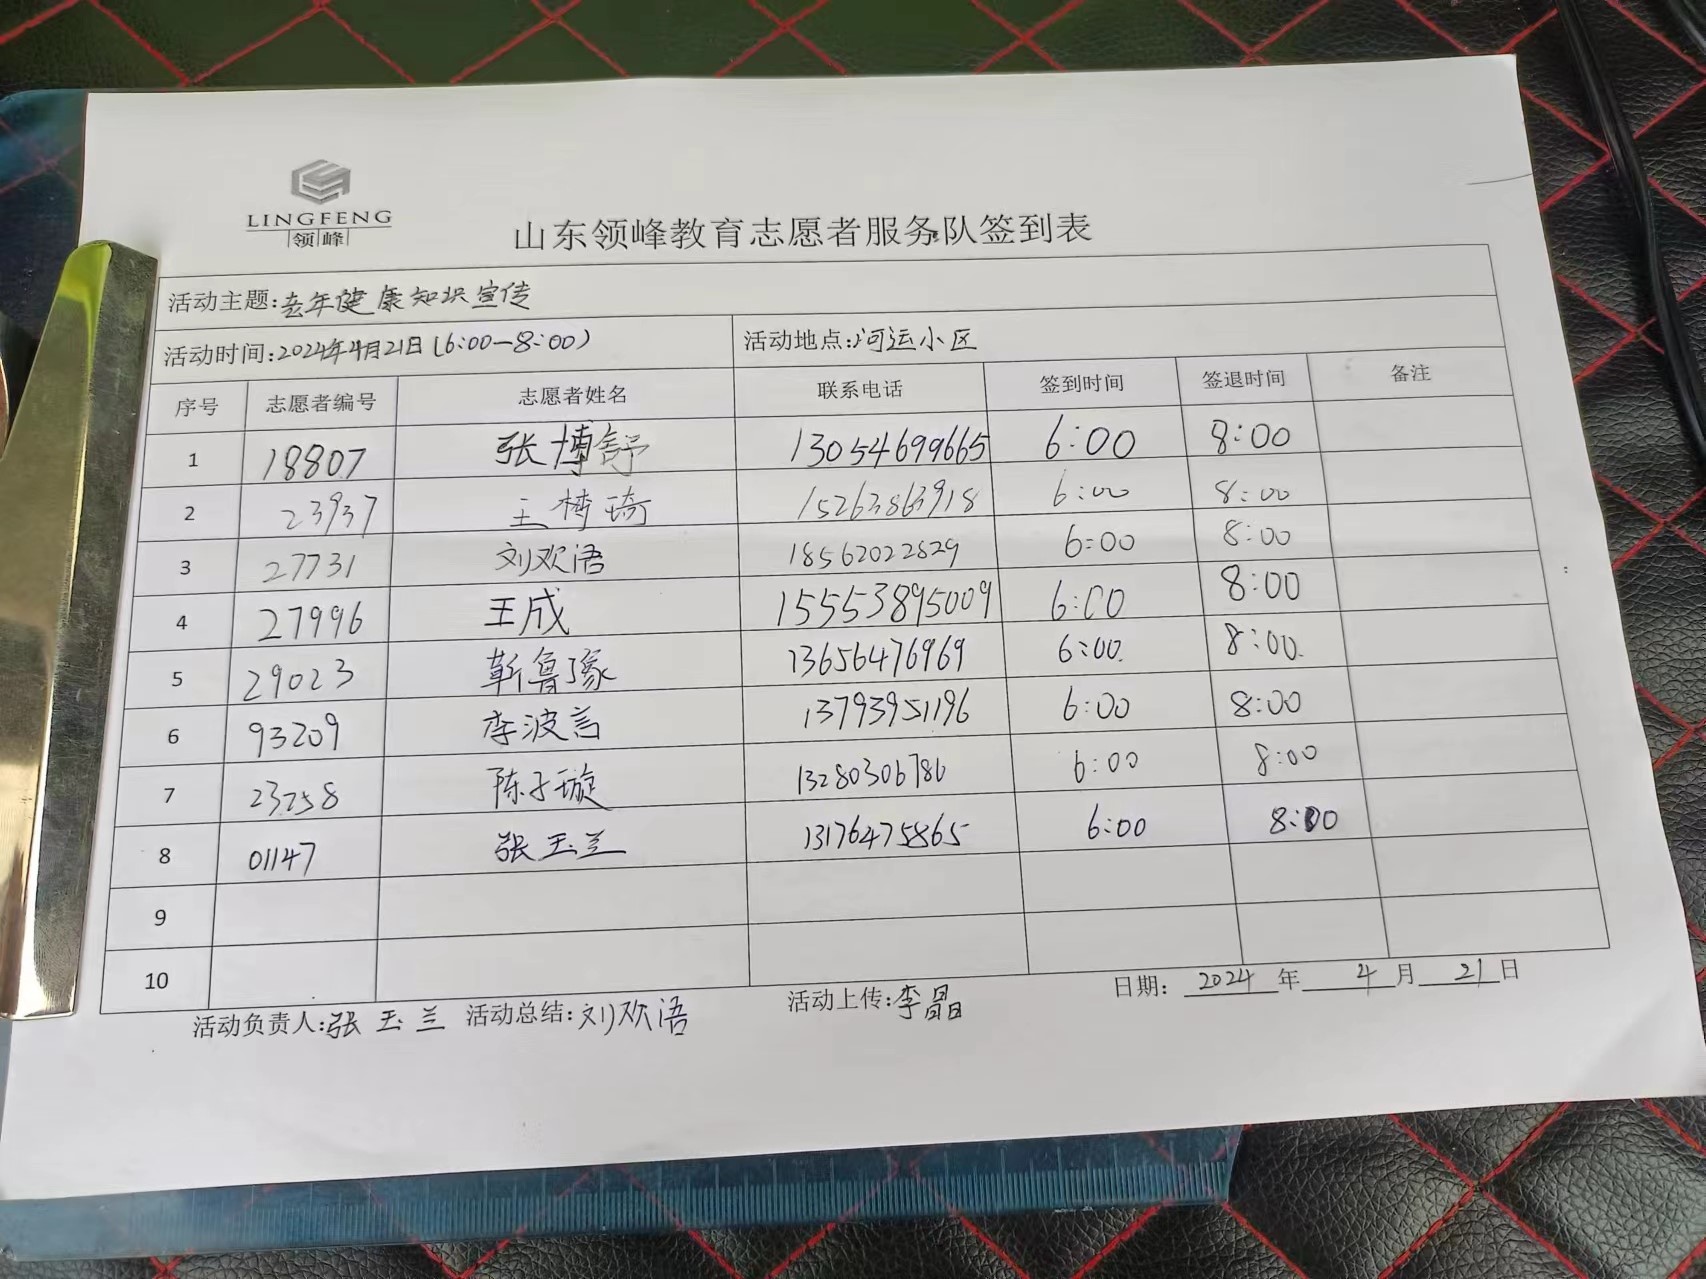 LINGFENG
领峰
山东领峰教育志愿者服务队签到表
活动主题:去年健康知识宣传
活动时间:2024年4月21日(6:00-8:00) 活动地点:河运小区
序号 志愿者编号 志愿者姓名 联系电话 签到时间 签退时间 备注
1 18807 张博舒 13054699665 6:00 8:00
2 23937 王梦琦 15263863918 6:00 8:00
3 27731 刘欢语 18562022829 6:00 8:00
4 27996 王成 15553895009 6:00 8:00
5 29023 靳鲁豫 13656476969 6:00 8:00
6 93209 李波言 13793951196 6:00 8:00
7 23258 陈子璇 13280306786 6:00 8:00
8 01147 张玉兰 13176475865 6:00 8:00
9
10
日期: 2024 年 4 月 21 日
活动负责人:张玉兰 活动总结:刘欢语 活动上传:李晶